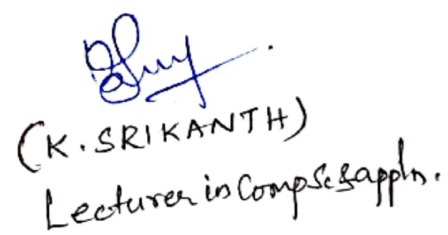 (K. SRIKANTH)
Lecturer in Comp Sc & appln.